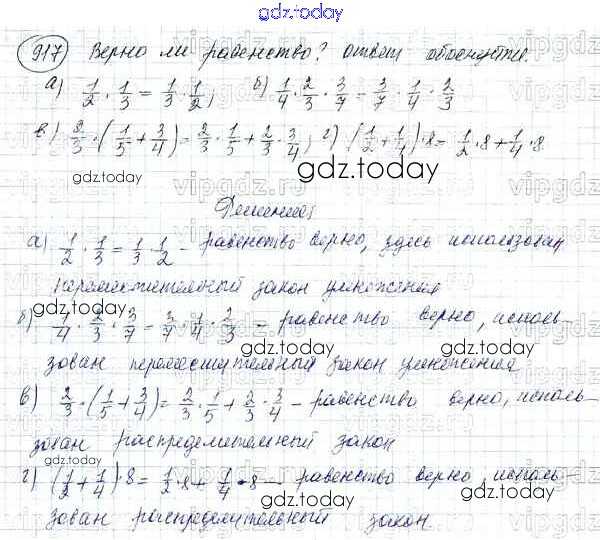 gdz.today
917 Верно ли равенство? Ответ обоснуйте.
а) 1/2 · 1/3 = 1/3 · 1/2, б) 1/4 · 2/3 · 3/7 = 3/7 · 1/4 · 2/3
в) 2/3 · (1/5 + 3/4) = 2/3 · 1/5 + 2/3 · 3/4, г) (1/2 + 1/4) · 8 = 1/2 · 8 + 1/4 · 8.
gdz.today gdz.today
Решение
а) 1/2 · 1/3 = 1/3 · 1/2 – равенство верно, здесь использован
переместительный закон умножения
gdz.today
б) 1/4 · 2/3 · 3/7 = 3/7 · 1/4 · 2/3 – равенство верно, исполь-
gdz.today
зован переместительный закон умножения
в) 2/3 · (1/5 + 3/4) = 2/3 · 1/5 + 2/3 · 3/4 – равенство верно, исполь-
зован распределительный закон
г) (1/2 + 1/4) · 8 = 1/2 · 8 + 1/4 · 8 – равенство верно, исполь-
gdz.today gdz.today
зован распределительный закон